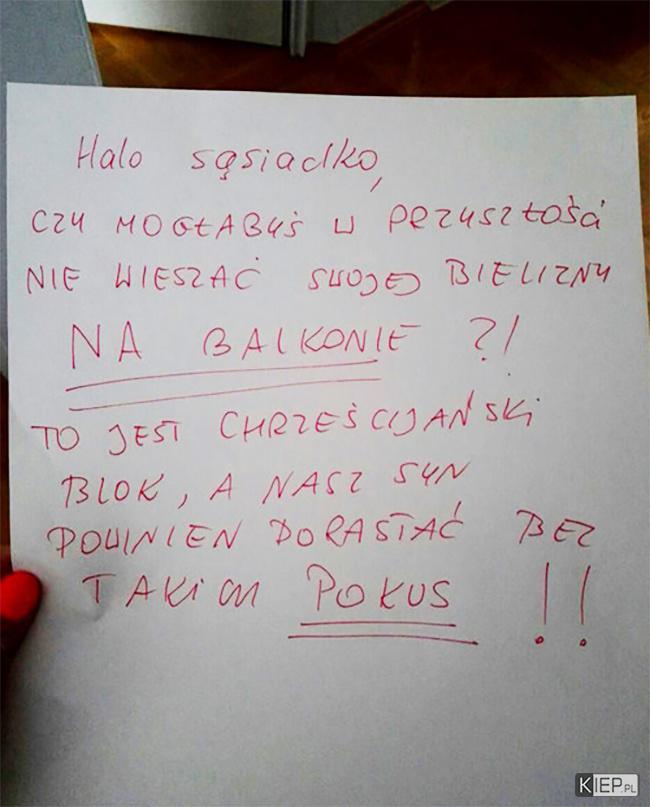 Halo sąsiadko,
CZY MOGŁABYŚ W PRZYSZŁOŚCI
NIE WIESZAĆ SWOJEJ BIELIZNY
NA BALKONIE ?!
TO JEST CHRZEŚCIJAŃSKI
BLOK, A NASZ SYN
POWINIEN DORASTAĆ BEZ
TAKICH POKUS !!
KIEP.PL